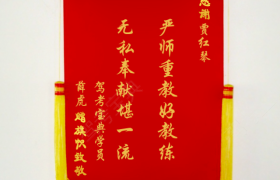 感谢贾红琴
严师重教好教练
无私奉献堪一流
驾考宝典学员
薛虎 赠旗帜致敬